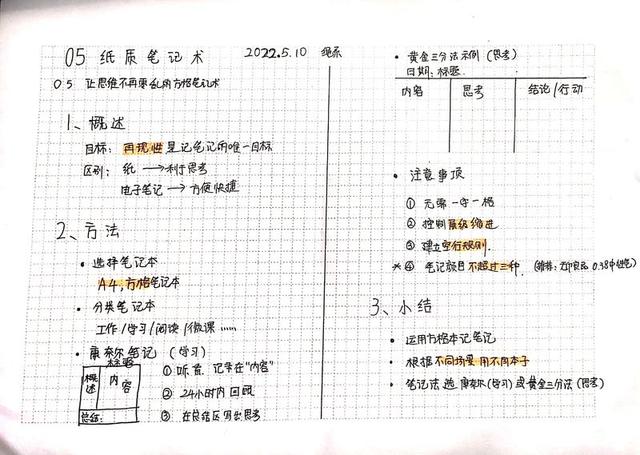 05 纸质笔记术 2022.5.10
05 让思维不再零乱的方格笔记术
1、概述
目标：再现性是记笔记的唯一目标
区别：纸 → 利于思考
电子笔记 → 方便快捷
2、方法
• 选择笔记本
A4，方格笔记本
• 分类笔记本
工作/学习/阅读/微课……
• 康奈尔笔记（学习）
标题
概述
内容
总结：
① 听首 记录在"内容"
② 24小时内回顾
③ 在总结区写出思考
• 黄金三分法示例（思考）
日期：标题
内容 思考 结论/行动
• 注意事项
① 无需一字一格
② 控制层级缩进
③ 建立空行规则.
*④ 笔记颜色不超过三种.（推荐：无印良品 0.38中性笔）
3、小结
• 运用方格本记笔记
• 根据不同场景用不同本子
• 笔记法选康奈尔(学习)或黄金三分法(思考)